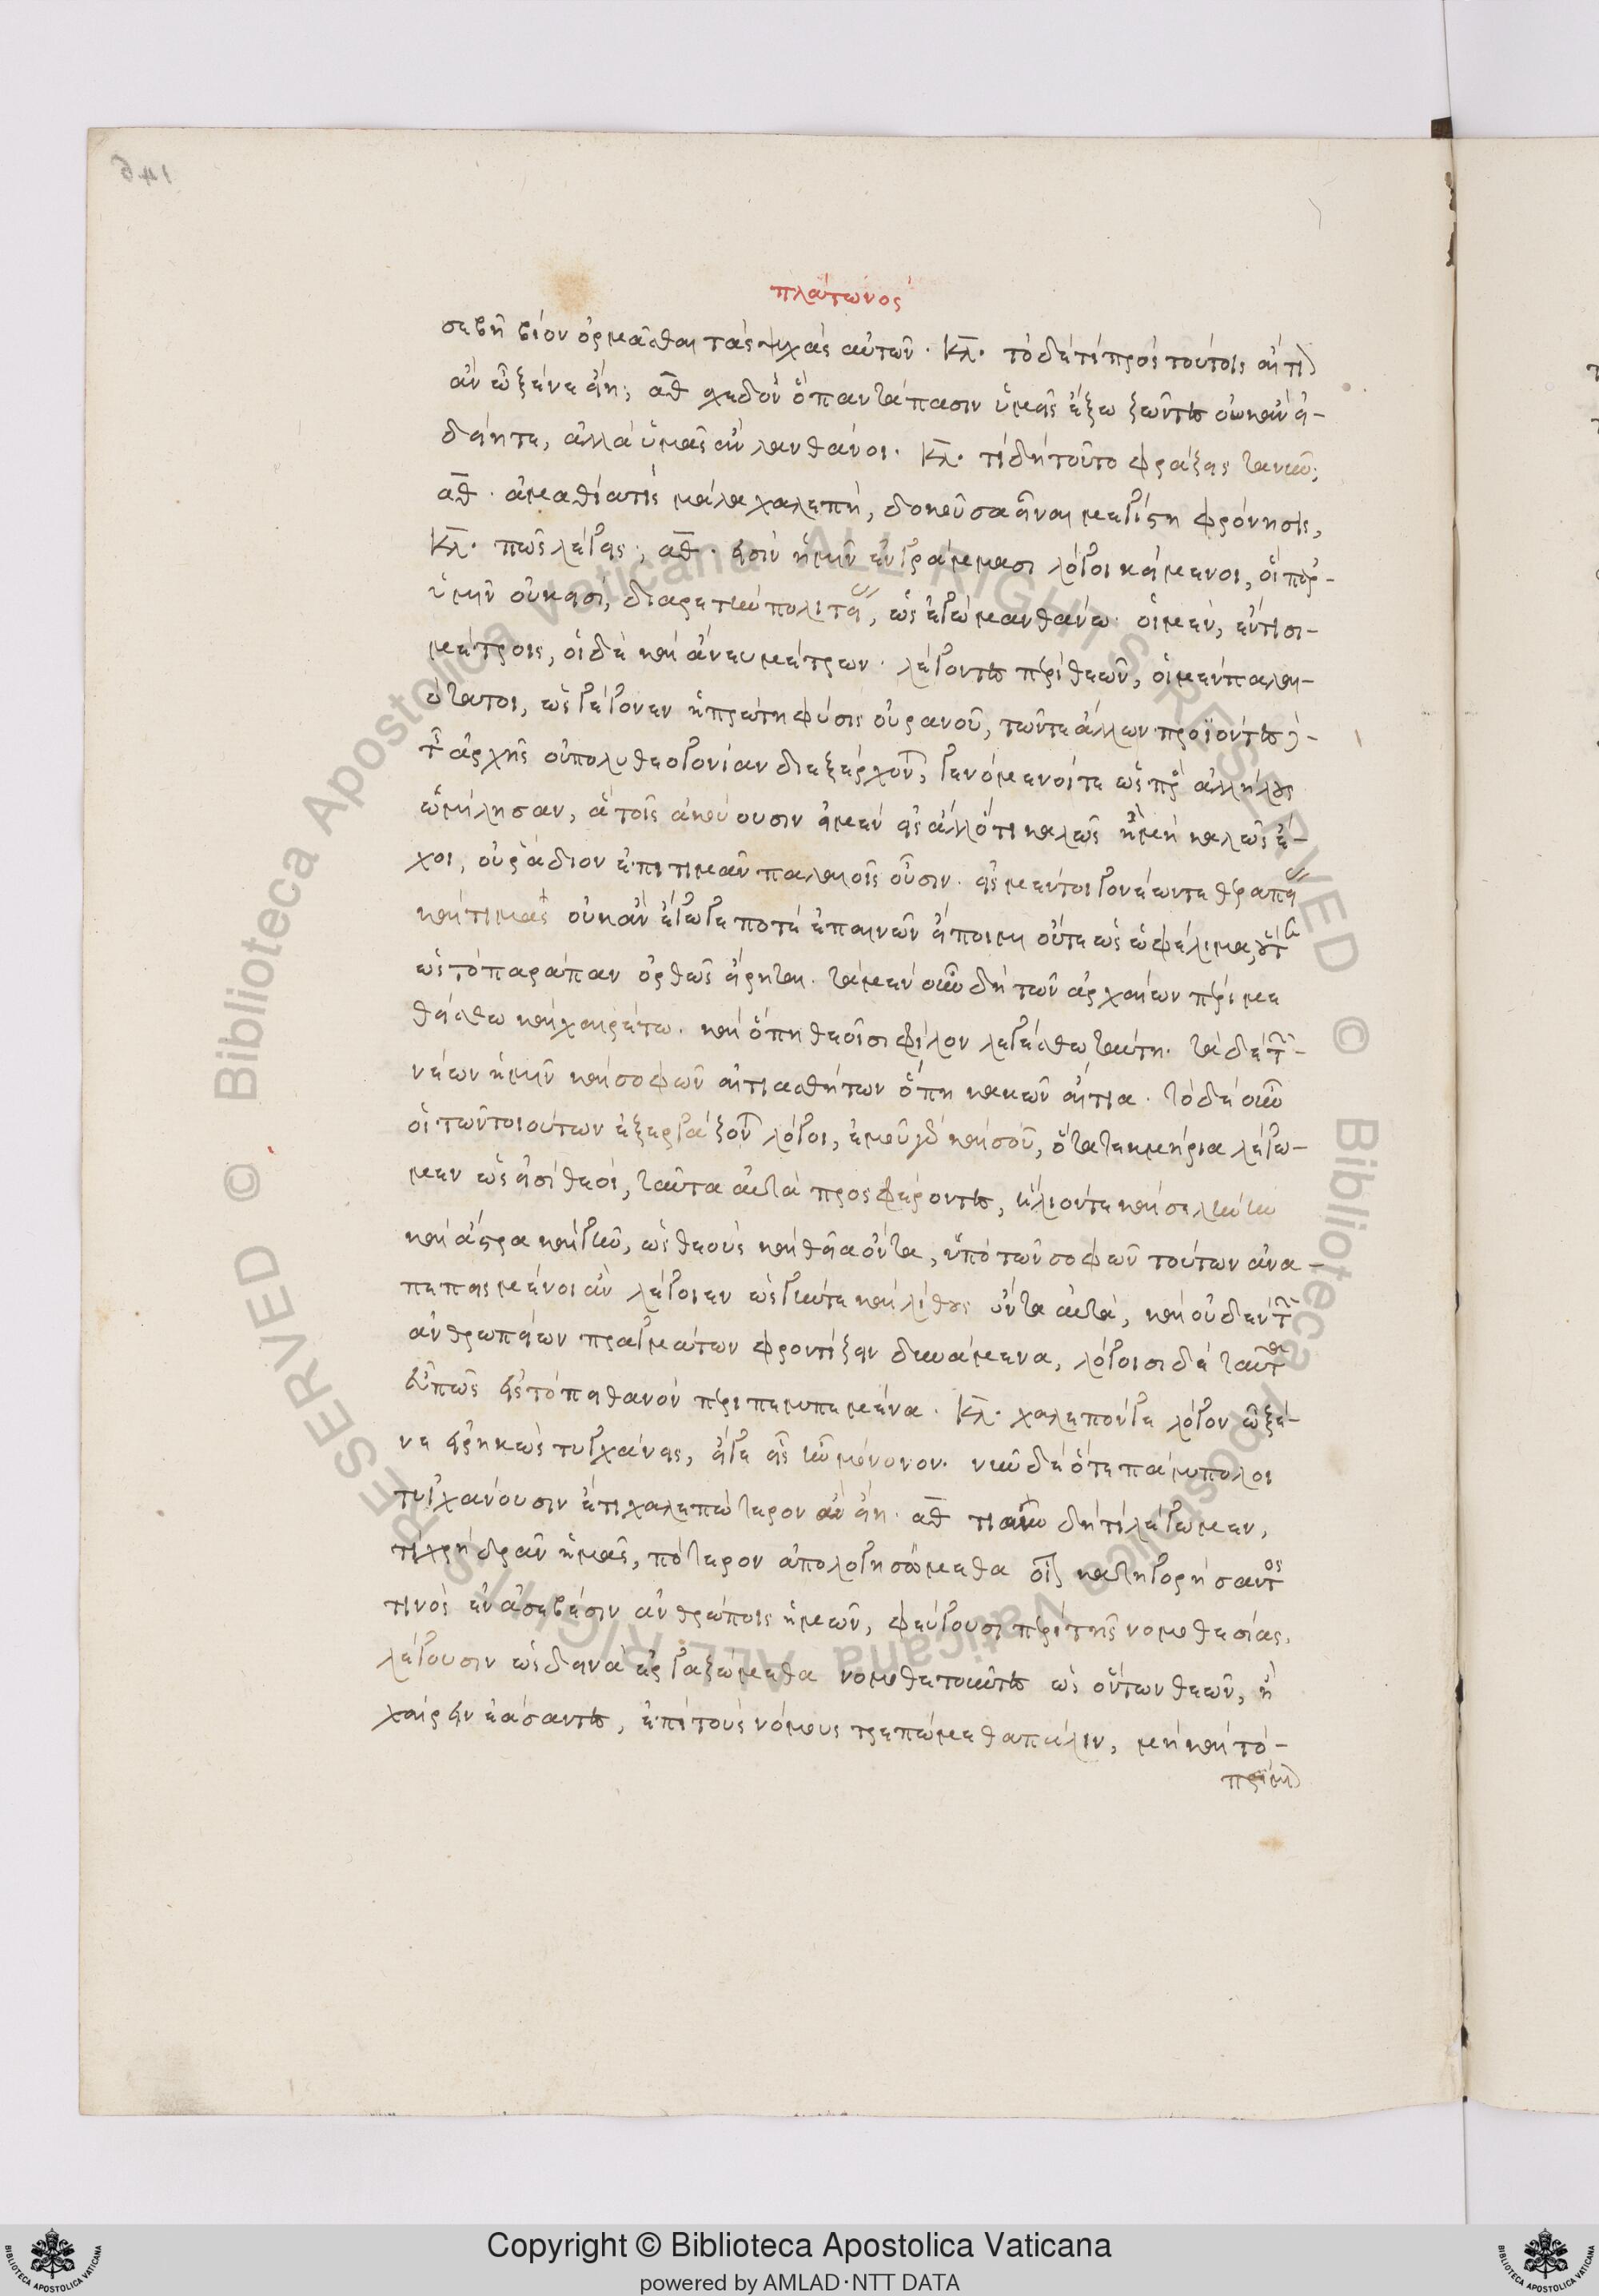 πλάτωνος
σεβῆ βίον ὁρμᾶσθαι τὰς ψυχὰς αὐτῶν. κλ. τὸ δὲ τί πρὸς τούτοις αἴτι
ἂν ὦ ξένε εἴη; αθ σχεδὸν ὃ παντάπασιν ὑμεῖς ἔξω ζῶντες οὐκ ἂν εἰ-
δείητε, ἀλλὰ ὑμᾶς ἂν λανθάνοι. κλ. τί δὴ τοῦτο φράζεις τανῦν;
αθ. ἀμαθία τις μάλα χαλεπή, δοκοῦσα εἶναι μεγίστη φρόνησις,
κλ. πῶς λέγεις; αθ. εἰσὶν ἡμῖν ἐν γράμμασι λόγοι κείμενοι, οἳ παρ-
ὑμῖν οὐκ εἰσί, δι ἀρετὴν πολιτείας, ὡς ἐγὼ μανθάνω. οἱ μὲν, ἔν τισι
μέτροις, οἱ δὲ καὶ ἄνευ μέτρων. λέγοντες περὶ θεῶν, οἱ μὲν παλαι-
ότατοι, ὡς γέγονεν ἡ πρώτη φύσις οὐρανοῦ, τῶν τε ἄλλων προϊόντες δὲ
τῆς ἀρχῆς οὐ πολὺ θεογονίαν διεξέρχονται, γενόμενοί τε ὡς πρὸς ἀλλήλους
ὡμίλησαν, ἃ τοῖς ἀκούουσιν εἰ μὲν εἰς ἄλλό τι καλῶς ἢ μὴ καλῶς ἔ-
χοι, οὐ ῥάδιον ἐπιτιμᾶν παλαιοῖς οὖσιν. εἰς μέντοι γονέων τε θεραπείας
καὶ τιμὰς οὐκ ἂν ἔγωγε ποτὲ ἐπαινῶν εἴποιμι οὔτε ὡς ὠφέλιμα, οὔτε
ὡς τὸ παράπαν ὀρθῶς εἴρηται. τὰ μὲν οὖν δὴ τῶν ἀρχαίων πέρι με
θείσθω καὶ χαιρέτω. καὶ ὅπη θεοῖσι φίλον λεγέσθω ταύτη. τὰ δὲ τῶν
νέων ἡμῖν καὶ σοφῶν αἰτιαθήτων ὅπη κακῶν αἴτια. τόδε οὖν
οἱ τῶν τοιούτων ἐξεργάζονται λόγοι, ἐμοῦ γὰρ καὶ σοῦ, ὅταν τεκμήρια λέγω-
μεν ὡς εἰσὶ θεοί, ταῦτα αὐτὰ προσφέροντες, ἥλιόν τε καὶ σελήνην
καὶ ἄστρα καὶ γῆν, ὡς θεοὺς καὶ θεῖα ὄντα, ὑπὸ τῶν σοφῶν τούτων ἀνα-
πεπεισμένοι ἂν λέγοιεν ὡς γῆν τε καὶ λίθους ὄντα αὐτά, καὶ οὐδὲν τῶν
ἀνθρωπείων πραγμάτων φροντίζειν δυνάμενα, λόγοισι δὲ ταῦτα
εὖ πως εἰς τὸ πιθανὸν περιπεπεμμένα. κλ. χαλεπόν γε λόγον ὦ ξέ-
νε εἰρηκὼς τυγχάνεις, εἴγε εἷς ἦν μόνον. νῦν δὲ ὅτε πάμπολοι
τυγχάνουσιν ἔτι χαλεπώτερον ἂν εἴη. αθ τί οὖν δὴ τί λέγωμεν,
τί χρὴ δρᾶν ἡμᾶς, πότερον ἀπολογησώμεθα οἷον κατηγορήσαντος
τινὸς ἐν ἀσεβέσιν ἀνθρώποις ἡμῶν, φεύγουσι περὶ τῆς νομοθεσίας,
λέγουσιν ὡς δεινὰ ἐργαζώμεθα νομοθετοῦντες ὡς ὄντων θεῶν, ἢ
χαίρειν ἐάσαντες, ἐπὶ τοὺς νόμους τρεπώμεθα πάλιν, μὴ καὶ τὸ-